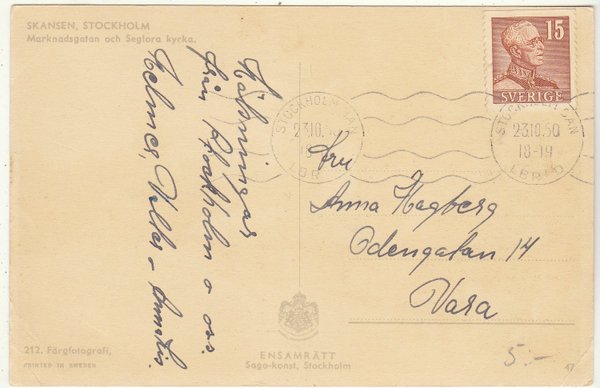 SKANSEN, STOCKHOLM
Marknadsgatan och Seglora kyrka.
Hälsningar
från Stockholm o oss.
Helmer, Valter
15
SVERIGE
STOCKHOLM
23.10.50
18-19
LBR
STOCKHOLM
23.10.50
18-19
Fru
Anna Hagberg
Odengatan 14
Vara
212. Färgfotografi,
PRINTED IN SWEDEN
ENSAMRÄTT
Sago-konst, Stockholm
5:-
47